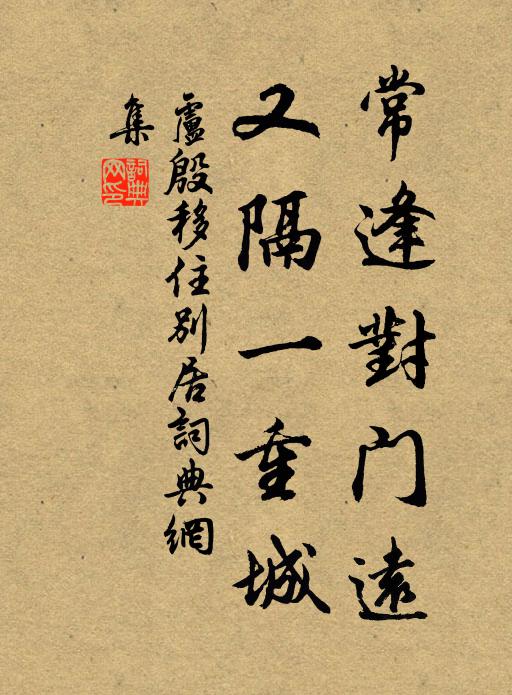 常逢對门遠
又隔一重城
盧殷移住別居詞典網
集
詞典
网印